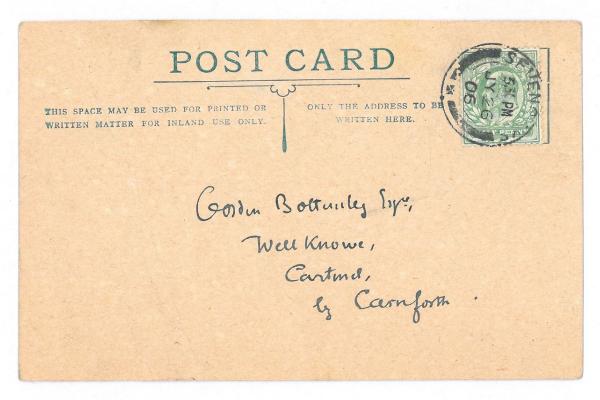 POST CARD
THIS SPACE MAY BE USED FOR PRINTED OR
WRITTEN MATTER FOR INLAND USE ONLY.
ONLY THE ADDRESS TO BE
WRITTEN HERE.
SEVENO
JY 26
06
Gordon Bottomley Esqre,
Well Knowe,
Cartmel,
by Carnforth.